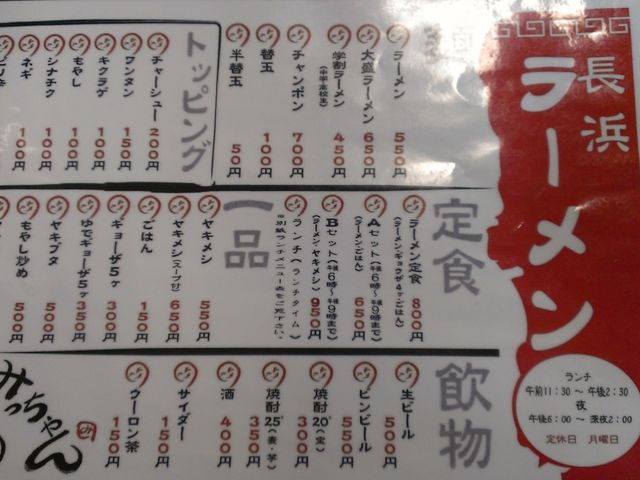 長浜
ラーメン
ラーメン 550円
大盛ラーメン 650円
学割ラーメン(中学高校生) 450円
チャンポン 700円
替玉 100円
半替玉 50円
トッピング
チャーシュー 200円
ワンタン 150円
キクラゲ 100円
もやし 100円
シナチク 100円
ネギ 100円
定食
ラーメン定食(ラーメン・ギョウザ4ヶ・ごはん) 800円
Aセット(午後6時〜午後9時まで)(ラーメン・ごはん) 650円
Bセット(午後6時〜午後9時まで)(ラーメン・ヤキメシ) 950円
ランチ(ランチタイム)
※別紙ランチメニュー表をご覧下さい。
一品
ヤキメシ 550円
ヤキメシ(スープ付) 650円
ごはん 150円
ギョーザ5ヶ 300円
ゆでギョーザ5ヶ 350円
ヤキブタ 500円
もやし炒め 500円
飲物
生ビール 500円
ビンビール 550円
焼酎20°(宝) 300円
焼酎25°(麦・芋) 350円
酒 400円
サイダー 150円
ウーロン茶 150円
みっちゃん
ランチ
午前11:30 〜 午後2:30
夜
午後6:00 〜 深夜2:00
定休日 月曜日